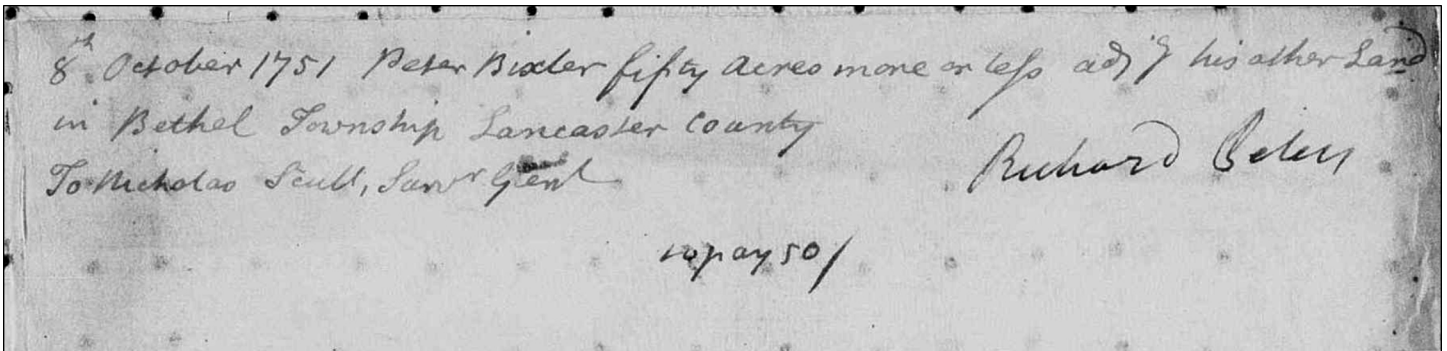 8th October 1751 Peter Bixler fifty Acres more or less adjg his other Land
in Bethel Township Lancaster County
To Nicholas Scull, Survr Genl
Richard Peters
to pay 50/